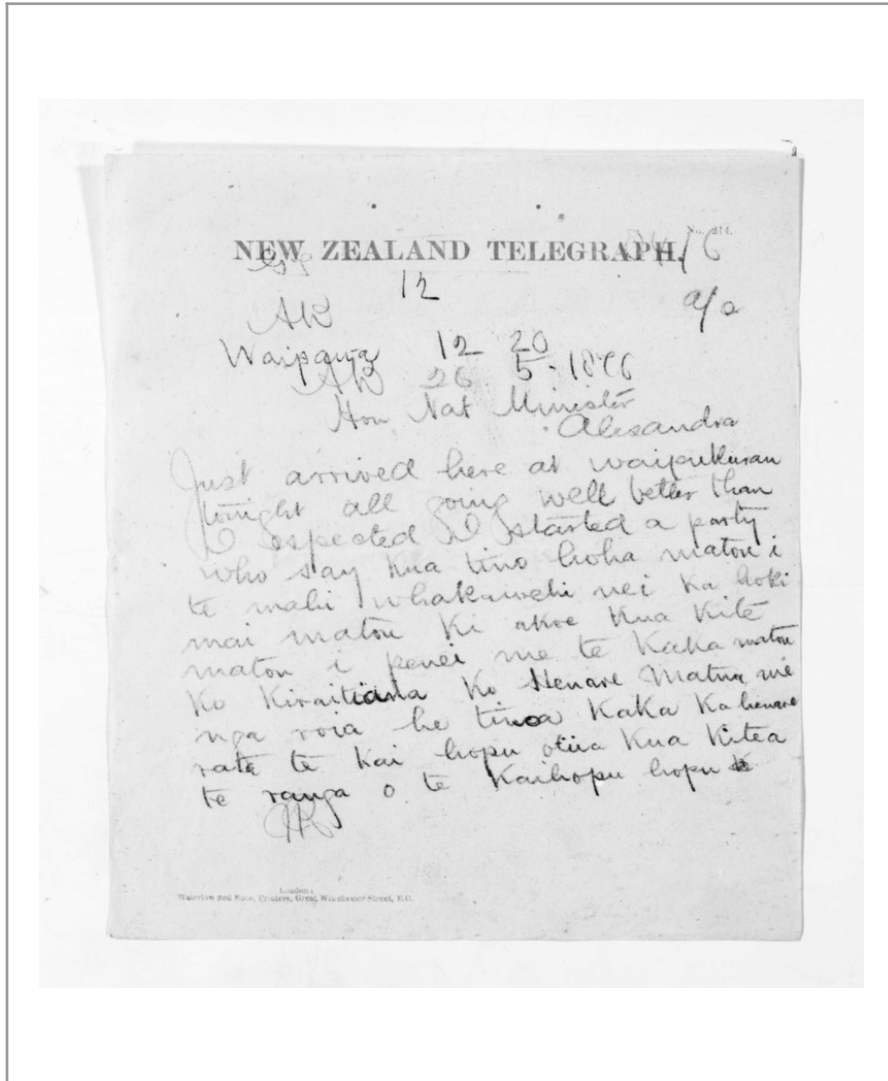 NEW ZEALAND TELEGRAPH.
12
AK a/a
Waipawa 12 20
AK 26 5.1876
Hon Nat Minister
Alexandra
Just arrived here at waipukurau
tonight all going well better than
I expected I started a party
who say Kua tino hoha matou i
te mahi whakawehi nei Ka hoki
mai matou Ki akoe Kua Kite
matou i penei me te Kaka matou
Ko Kiraitiana Ko Henare Matua me
nga roia he tinoa Kaka Ka henare
rata te Kai hopu otiia Kua Kitea
te ranga o te Kaihopu hopu
London:
Waterlow and Sons, Printers, Great Winchester Street, E.C.